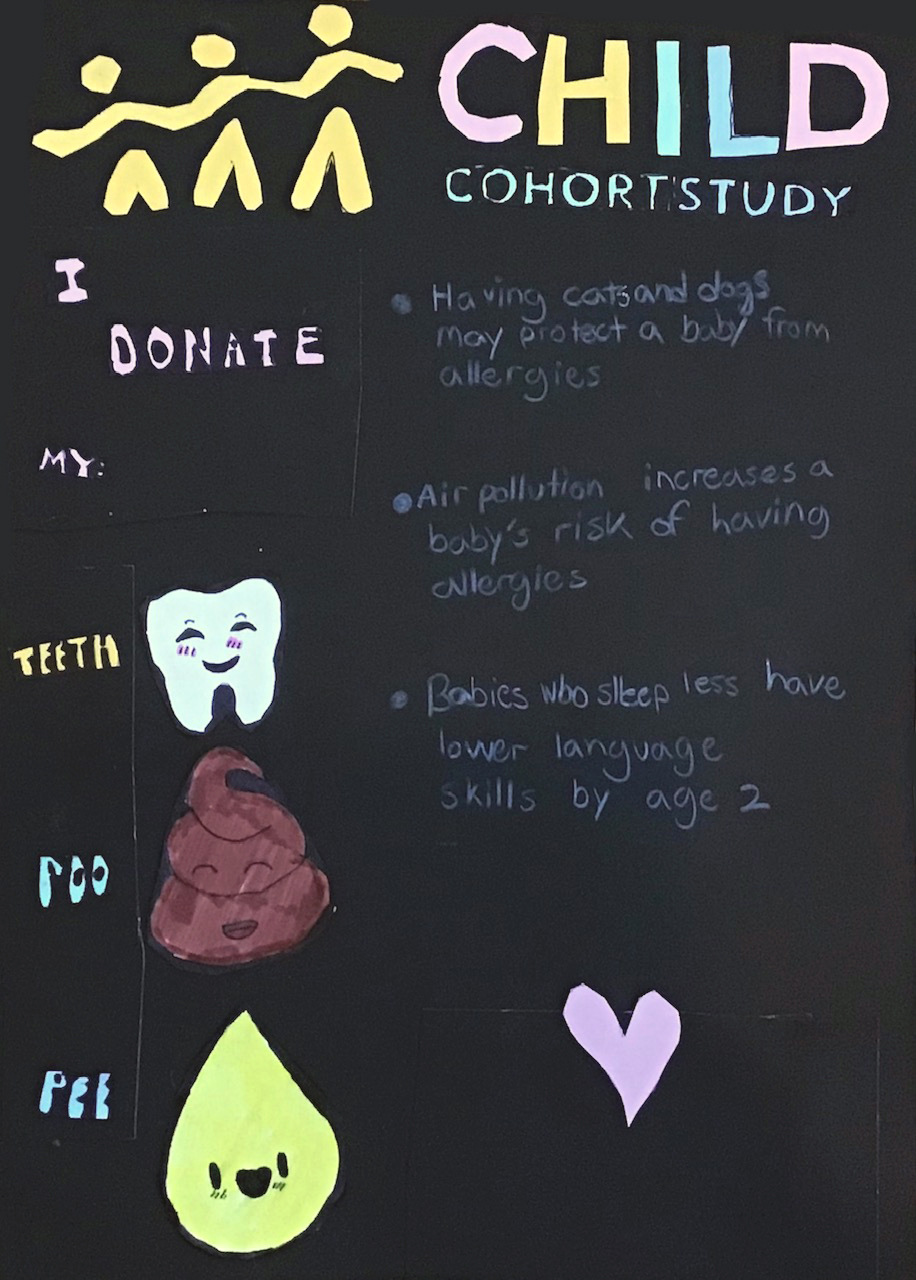 CHILD
COHORT STUDY
I
DONATE
MY:
TEETH
POO
PEE
• Having cats and dogs
may protect a baby from
allergies
• Air pollution increases a
baby's risk of having
allergies
• Babies who sleep less have
lower language
skills by age 2